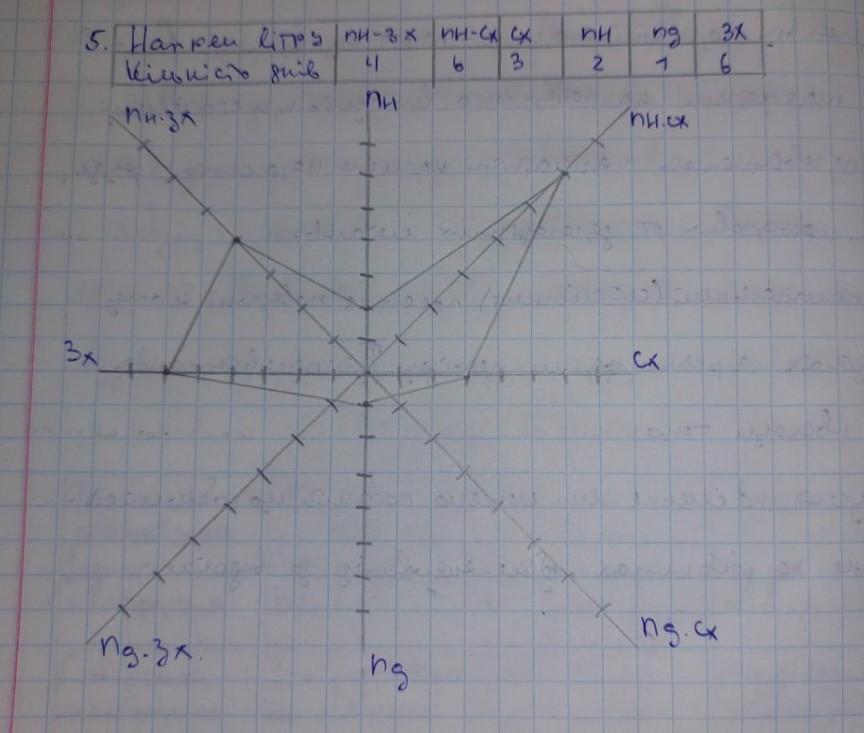 5. Напрям вітру пн-зх пн-сх сх пн пд зх
Кількість днів 4 6 3 2 1 6
пн
пн-зх
пн.сх
Зх
сх
пд-зх.
пд.сх
пд